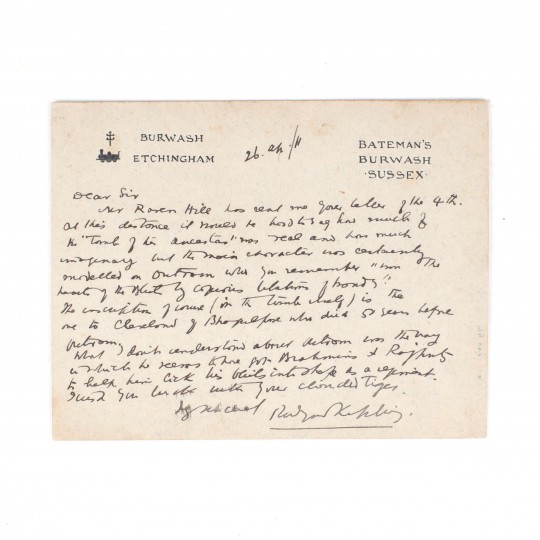 BURWASH
ETCHINGHAM
26. /11
BATEMAN'S
BURWASH
·SUSSEX·
Dear Sir
Mr Raven Hill has sent me your letter of the 4th.
At this distance it would be hard to say how much of
the "Tomb of his ancestor" was real and how much
imaginary but the main character was certainly
modelled on Outram who you remember "won the
hearts of the Bhils by copious libations of brandy".
The inscription of course (on the tomb itself) is the
one to Cleveland of Bhagulpore who died 50 years before
Outram.
What I don't understand about Outram was the way
in which he seems to have got Brahmins & Rajputs
to help him lick his Bhils into shape as a regiment.
I wish you luck with your clouded tiger.
Rudyard Kipling.